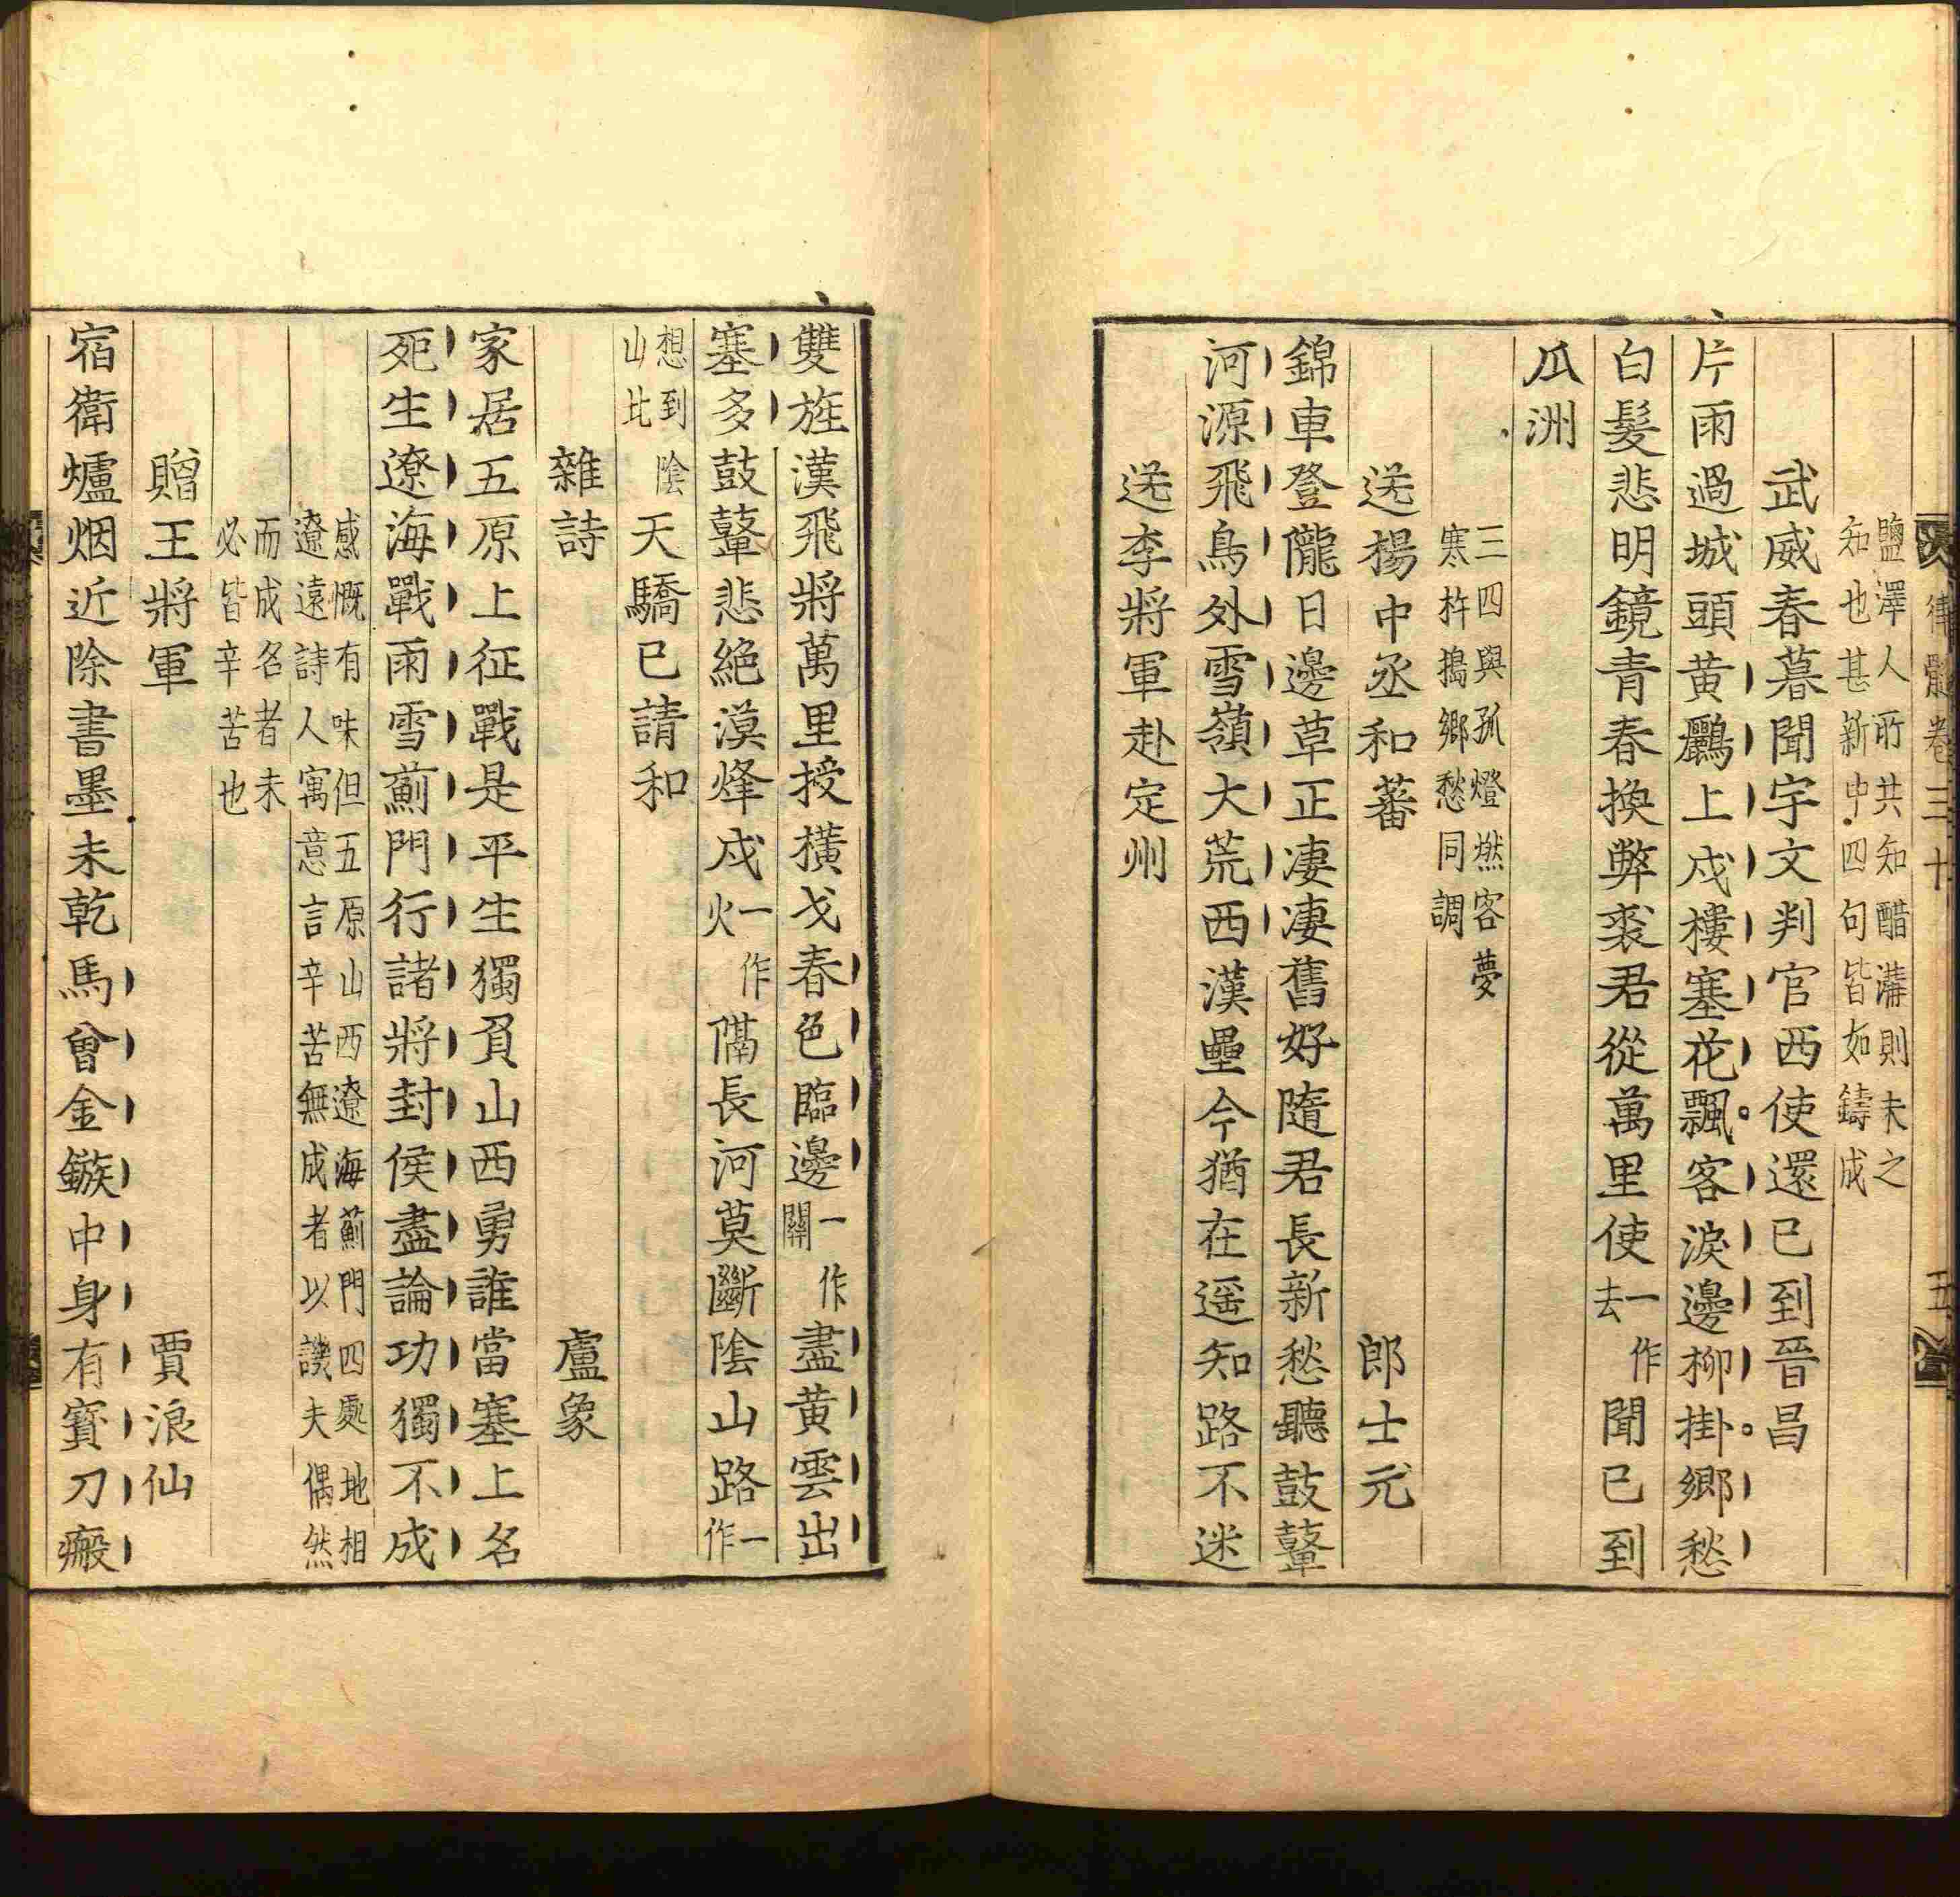 律髓卷三十
五
鹽澤人所共知醋溝則未之
知也甚新中四句皆如鑄成
武威春暮聞宇文判官西使還已到晉昌
片雨過城頭黄鸝上戍樓塞花飄客淚邊柳掛鄉愁
白髮悲明鏡青春換弊裘君從萬里使一作去聞已到
瓜洲
三四與孤燈燃客夢
寒杵搗鄉愁同調
送楊中丞和蕃 郎士元
錦車登隴日邊草正凄凄舊好隨君長新愁聽鼓鼙
河源飛鳥外雪嶺大荒西漢壘今猶在遥知路不迷
送李將軍赴定州
雙旌漢飛將萬里授橫戈春色臨邊一作關盡黄雲出
塞多鼓鼙悲絕漠烽戍一作火隔長河莫斷陰山路一作
想到陰山比天驕已請和
雜詩 盧象
家居五原上征戰是平生獨負山西勇誰當塞上名
死生遼海戰雨雪薊門行諸將封侯盡論功獨不成
感慨有味但五原山西遼海薊門四處地相
遼遠詩人寓意言辛苦無成者以譏夫偶然
而成名者未
必皆辛苦也
贈王將軍 賈浪仙
宿衛爐烟近除書墨未乾馬曾金鏃中身有寳刀瘢